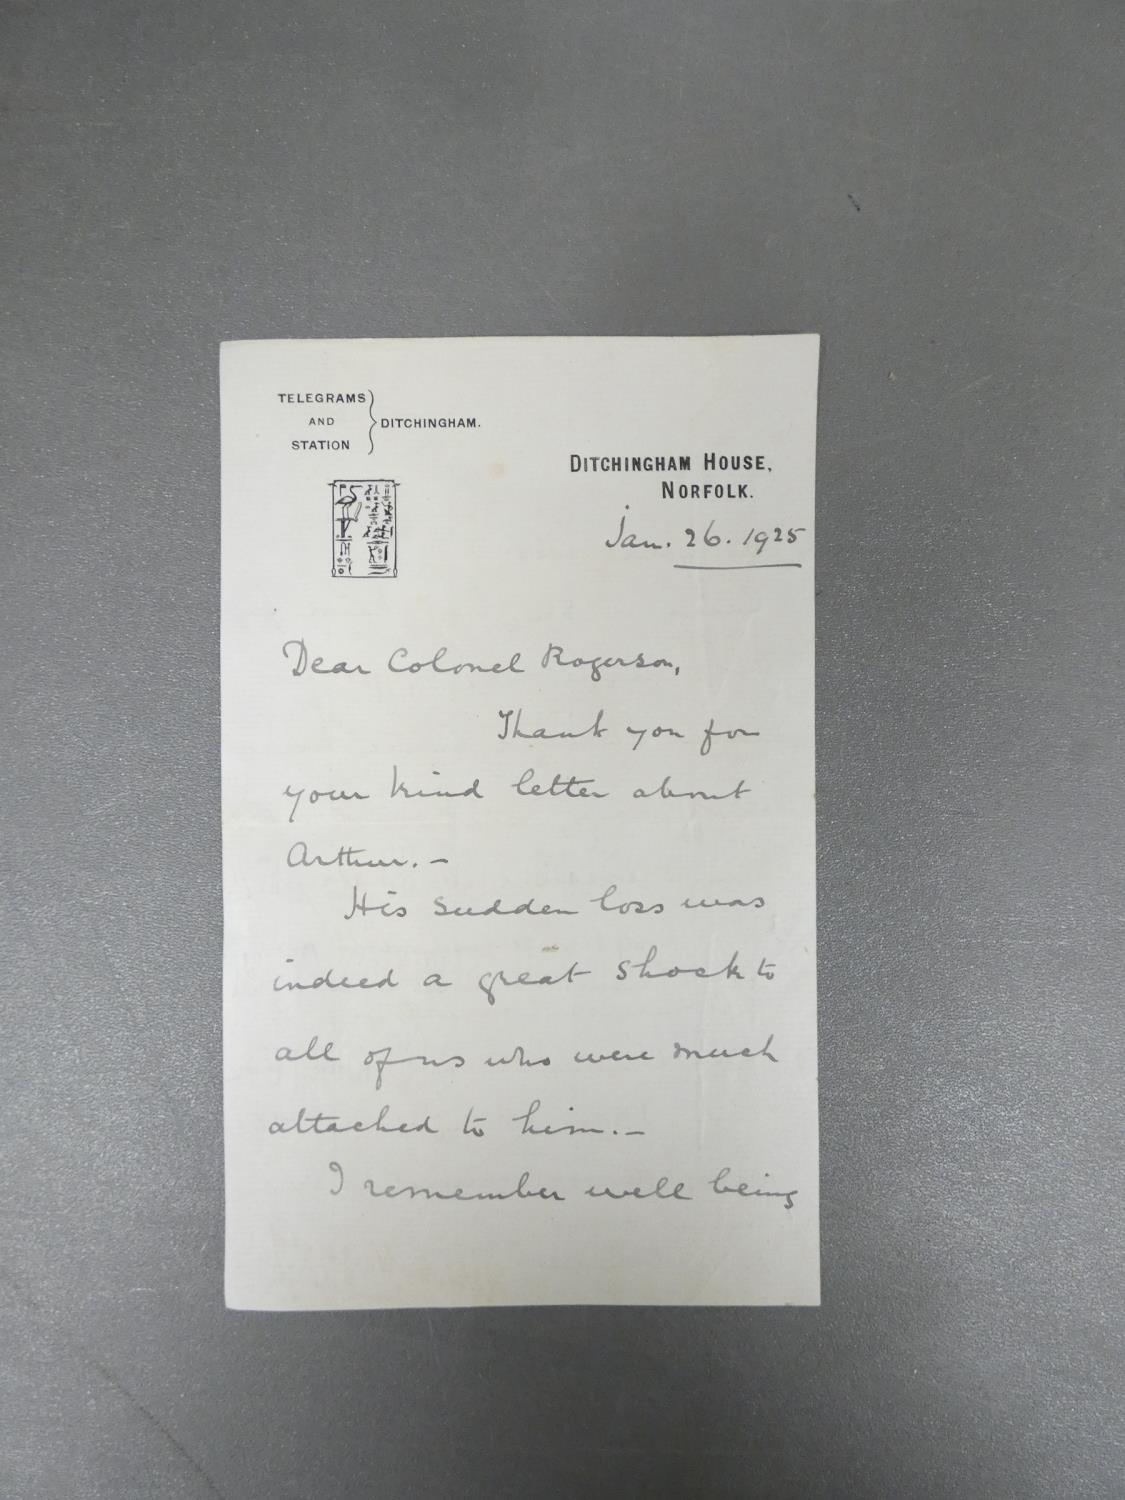 TELEGRAMS
AND
STATION
DITCHINGHAM.
DITCHINGHAM HOUSE,
NORFOLK.
Jan. 26. 1925
Dear Colonel Rogerson,
Thank you for
your kind letter about
Arthur. –
His sudden loss was
indeed a great shock to
all of us who were much
attached to him. –
I remember well being